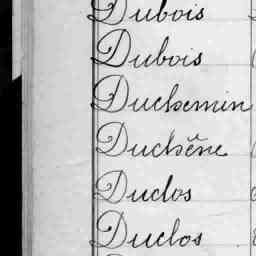 Dubois
Dubois
Duchemin
Duchêne
Duclos
Duclos